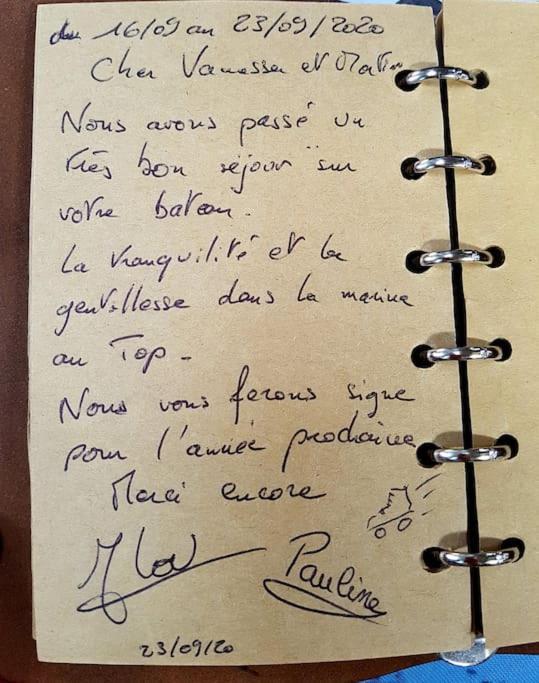 du 16/09 au 23/09/2020
Cher Vanessa et Martin
Nous avons passé un
très bon séjour sur
votre bateau.
La tranquilité et la
gentillesse dans la marina
au Top -
Nous vous ferons signe
pour l'année prochaine
Merci encore
Pauline
23/09/20